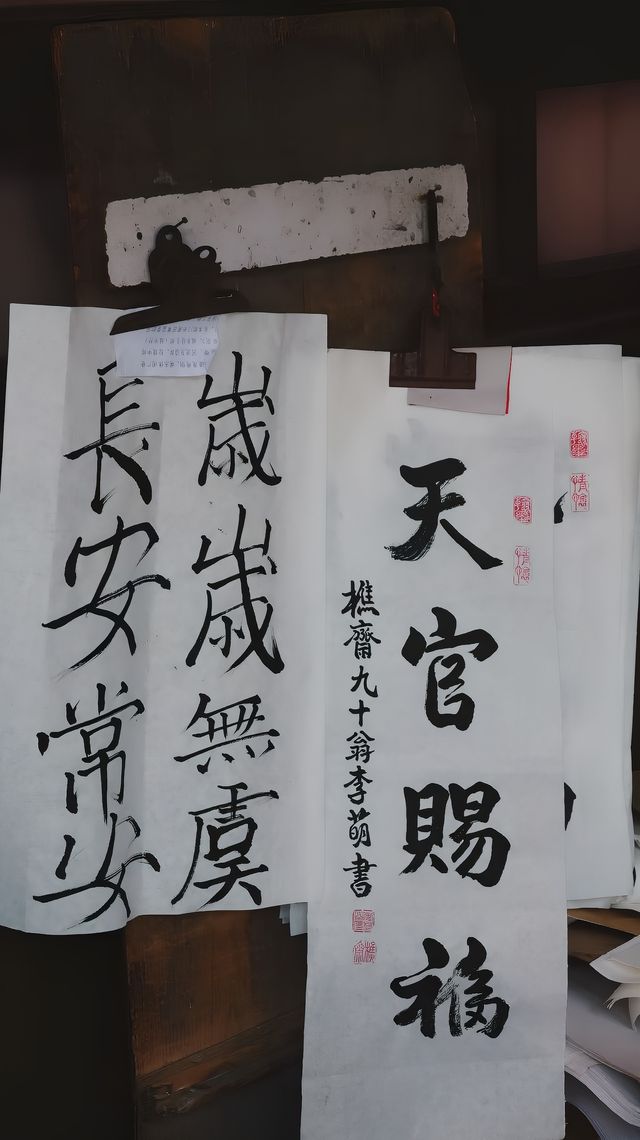 天官賜福
樵齋九十翁李萌書
歲歲無虞
長安常安